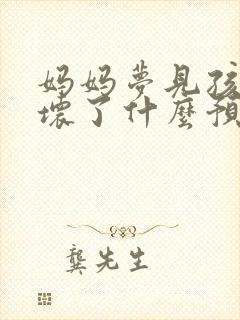 妈妈夢見孩
壞了什麼預
龔先生